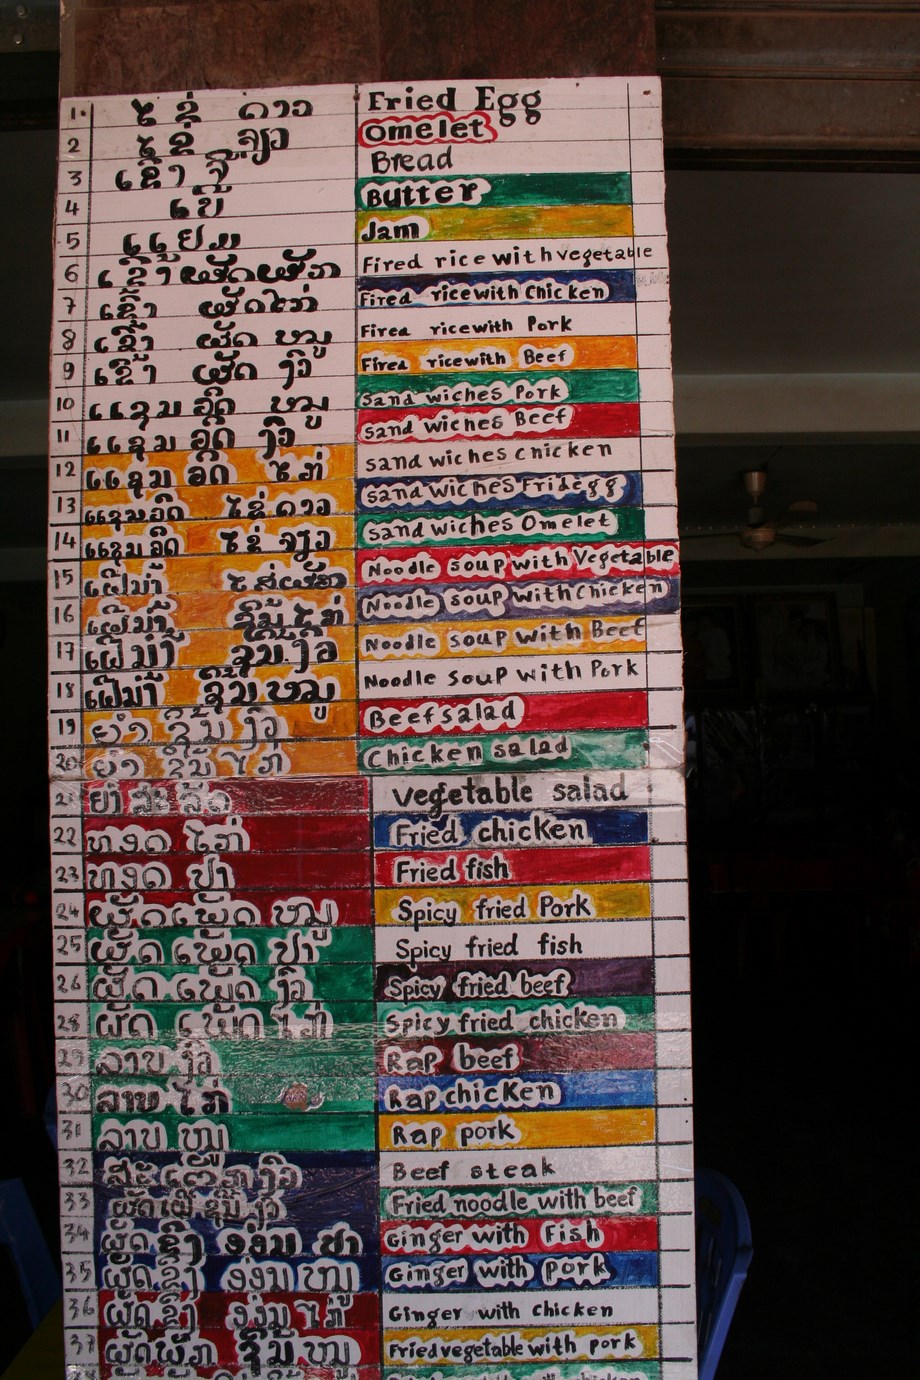 1. ໄຂ່ ດາວ Fried Egg
2 ໄຂ່ ຈຽວ Omelet
3 ເຂົ້າ ຈີ່ Bread
4 ເບີ້ Butter
5 ແຢມ Jam
6 ເຂົ້າ ຜັດຜັກ Fired rice with vegetable
7 ເຂົ້າ ຜັດໄກ່ Fired rice with Chicken
8 ເຂົ້າ ຜັດ ໝູ Fired rice with Pork
9 ເຂົ້າ ຜັດ ງົວ Fired rice with Beef
10 ແຊມ ອິດ ໝູ Sand wiches Pork
11 ແຊມ ອິດ ງົວ Sand wiches Beef
12 ແຊມ ອິດ ໄກ່ Sand wiches chicken
13 ແຊມອິດ ໄຂ່ດາວ Sand wiches Fridegg
14 ແຊມອິດ ໄຂ່ ຈຽວ Sand wiches Omelet
15 ເຝີນ້ຳ ໃສ່ຜັກ Noodle soup with Vegetable
16 ເຝີນ້ຳ ຊີ້ນໄກ່ Noodle soup with Chicken
17 ເຝີນ້ຳ ຊີ້ນງົວ Noodle soup with Beef
18 ເຝີນ້ຳ ຊີ້ນໝູ Noodle soup with Pork
19 ຍຳ ຊີ້ນ ງົວ Beef salad
20 ຍຳ ຊີ້ນ ໄກ່ Chicken salad
21 ຍຳ ສະ ລັດ vegetable salad
22 ທອດ ໄກ່ Fried chicken
23 ທອດ ປາ Fried fish
24 ຜັດ ເຜັດ ໝູ Spicy fried Pork
25 ຜັດ ເຜັດ ປາ Spicy fried fish
26 ຜັດ ເຜັດ ງົວ Spicy fried beef
28 ຜັດ ເຜັດ ໄກ່ Spicy fried chicken
29 ລາບ ງົວ Rap beef
30 ລາບ ໄກ່ Rap chicken
31 ລາບ ໝູ Rap pork
32 ສະ ເຕັກ ງົວ Beef steak
33 ຜັດເຝີ ຊີ້ນ ງົວ Fried noodle with beef
34 ຜັດ ຂີງ ປາ Ginger with Fish
35 ຜັດ ຂີງ ໝູ Ginger with pork
36 ຜັດ ຂີງ ໄກ່ Ginger with chicken
37 ຜັດ ຜັກ ຊີ້ນ ໝູ Fried vegetable with pork